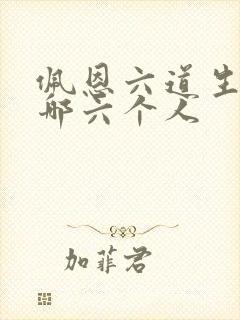 佩恩六道生
哪六个人
加菲君